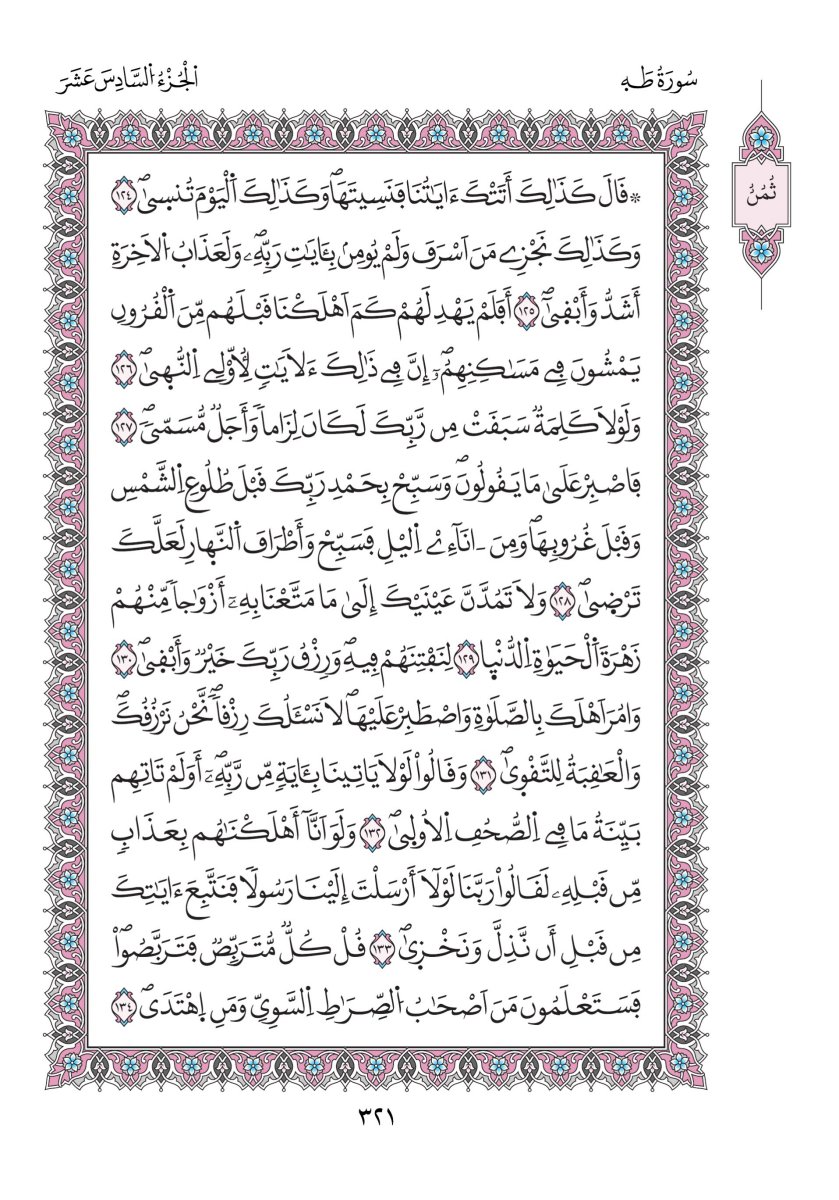 سُورَةُ طَهِ
اَلْجُزْءُ اَلسَّادِسَ عَشَرَ
ثُمُنُ
* قَالَ كَذَٰلِكَ أَتَتْكَ ءَايَٰتُنَا فَنَسِيتَهَاۖ وَكَذَٰلِكَ اَ۬لْيَوْمَ تُنس۪يٰۖ ١٢٤
وَكَذَٰلِكَ نَجْزِے مَنَ اَسْرَفَ وَلَمْ يُومِنۢ بِـَٔايَٰتِ رَبِّهِۦۖ وَلَعَذَابُ اُ۬لَاخِرَةِ
أَشَدُّ وَأَبْق۪يٰٓۖ ١٢٥ أَفَلَمْ يَهْدِ لَهُمْ كَمَ اَهْلَكْنَا قَبْلَهُم مِّنَ اَ۬لْقُرُونِ
يَمْشُونَ فِے مَسَٰكِنِهِمُۥٓۖ إِنَّ فِے ذَٰلِكَ ءَلَايَٰتٖ لِّأُوْلِے اِ۬لنُّه۪يٰۖ ١٢٦
وَلَوْلَا كَلِمَةٞ سَبَقَتْ مِن رَّبِّكَ لَكَانَ لِزَاماٗ وَأَجَلٞ مُّسَمّيٗۖ ١٢٧
فَاصْبِرْ عَلَىٰ مَا يَقُولُونَۖ وَسَبِّحْ بِحَمْدِ رَبِّكَ قَبْلَ طُلُوعِ اِ۬لشَّمْسِ
وَقَبْلَ غُرُوبِهَاۖ وَمِنَ اٰنَآءِےْ اِ۬ليْلِ فَسَبِّحْ وَأَطْرَافَ اَ۬لنَّه۪ارِ لَعَلَّكَ
تَرْض۪يٰۖ ١٢٨ وَلَا تَمُدَّنَّ عَيْنَيْكَ إِلَىٰ مَا مَتَّعْنَا بِهِۦٓ أَزْوَٰجاٗ مِّنْهُمْ
زَهْرَةَ اَ۬لْحَيَوٰةِ اِ۬لدُّنْي۪ا ١٢٩ لِنَفْتِنَهُمْ فِيهِۖ وَرِزْقُ رَبِّكَ خَيْرٞ وَأَبْق۪يٰۖ ١٣٠
وَامُرَ اَهْلَكَ بِالصَّلَوٰةِ وَاصْطَبِرْ عَلَيْهَاۖ لَا نَسْـَٔلُكَ رِزْقاٗۖ نَّحْنُ نَرْزُقُكَۖ
وَالْعَٰقِبَةُ لِلتَّقْو۪يٰۖ ١٣١ وَقَالُواْ لَوْلَا يَاتِينَا بِـَٔايَةٖ مِّن رَّبِّهِۦٓۖ أَوَلَمْ تَاتِهِم
بَيِّنَةُ مَا فِے اِ۬لصُّحُفِ اِ۬لُاول۪يٰۖ ١٣٢ وَلَوَ اَنَّآ أَهْلَكْنَٰهُم بِعَذَابٖ
مِّن قَبْلِهِۦ لَقَالُواْ رَبَّنَا لَوْلَآ أَرْسَلْتَ إِلَيْنَا رَسُولاٗ فَنَتَّبِعَ ءَايَٰتِكَ
مِن قَبْلِ أَن نَّذِلَّ وَنَخْز۪يٰۖ ١٣٣ قُلْ كُلّٞ مُّتَرَبِّصٞ فَتَرَبَّصُواْۖ
فَسَتَعْلَمُونَ مَنَ اَصْحَٰبُ اُ۬لصِّرَٰطِ اِ۬لسَّوِيِّ وَمَنِ اِ۪هْتَد۪يٰۖ ١٣٤
٣٢١